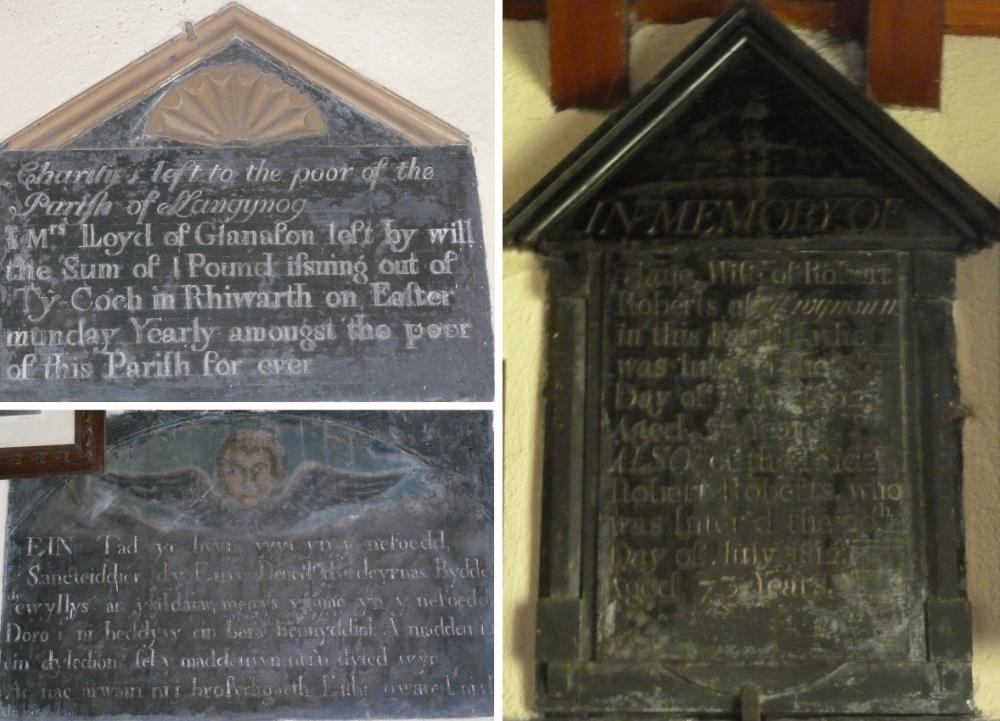 Charity's left to the poor of the
Parish of Llangynog
1 Mrs Lloyd of Glanafon left by will
the Sum of 1 Pound issuing out of
Ty Coch in Rhiwarth on Easter
munday Yearly amongst the poor
of this Parish for ever
EIN Tad yr hwn wyt yn y nefoedd,
Sancteiddier dy Enw Deued dy deyrnas Bydded
dy ewyllys ar y ddaiar, megys y mae yn y nefoedd
Doro i ni heddyw ein bara beunyddiol A madden i
ein dyledion fel y maddeuwn ni i'n dyled wŷr
Ac nac arwain ni i brofedigaeth Eithr gwared ni
IN MEMORY OF
Jane Wife of Robert
Roberts of
in this Parish who
was Inter'd the
Day of
Aged Years
ALSO of the said
Robert Roberts who
was Inter'd the th
Day of July
Aged 73 Years.